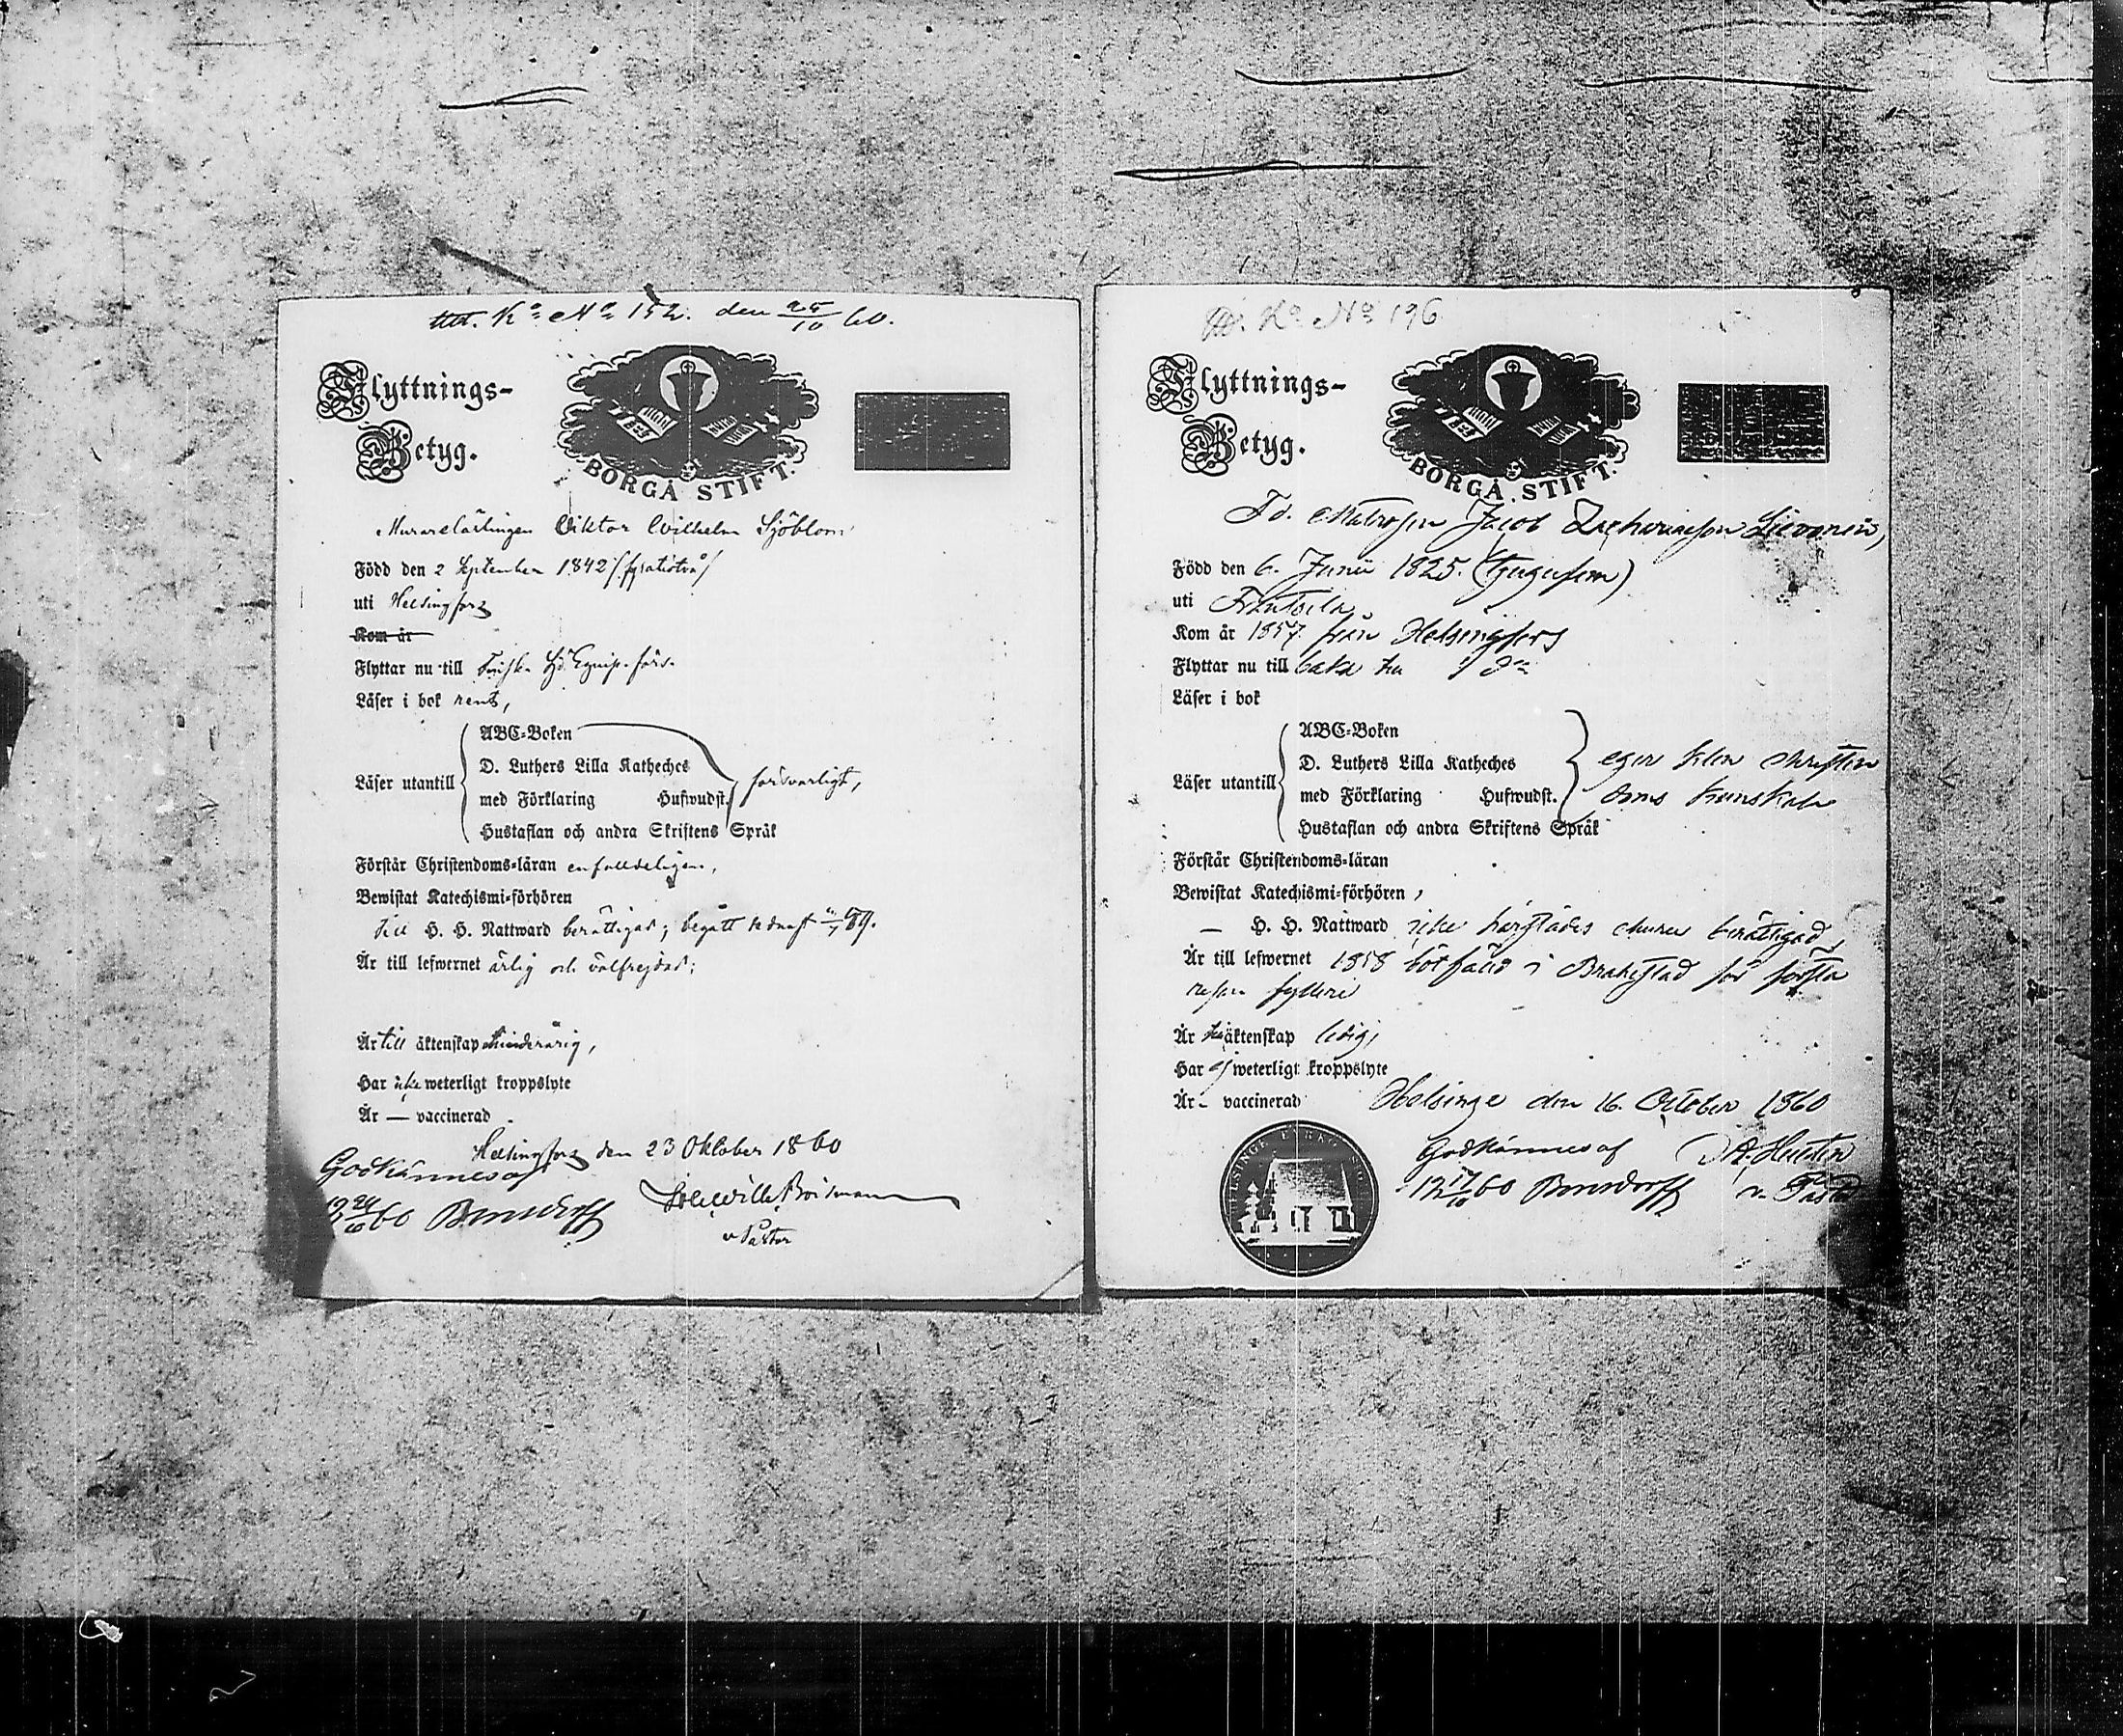 Ko No 152. den 25/10 60.
Flyttnings-
Betyg.
BORGÅ STIFT.
Murarelärlingen Viktor Wilhelm Sjöblom
Född den 2 September 1842 /fyratiotvå/
uti Helsingfors
Kom år
Flyttar nu till Equip.
Läser i bok rent,
ABC-Boken
D. Luthers Lilla Katheches
Läser utantill försvarligt,
med Förklaring Hufwudst.
Hustaflan och andra Skriftens Språk
Förstår Christendoms-läran enfaldeligen,
Bewistat Katechismi-förhören
till H. H. Nattward berättigad; begått sednast
Är till lefwernet ärlig och välfrejdad;
Är till äktenskap minderårig,
Har icke weterligt kroppslyte
Är — vaccinerad
Helsingfors den 23 Oktober 1860
Godkännes af
24/10 60 Bonsdorff
v Pastor
Ko No 196
Flyttnings-
Betyg.
BORGÅ STIFT.
F.d. Matrosen Jacob Zachariasson Lievonen,
Född den 6. Junii 1825. (tjugufem)
uti Frantsila
Kom år 1857 från Helsingfors
Flyttar nu till baka
Läser i bok
ABC-Boken
D. Luthers Lilla Katheches
Läser utantill eger klen christen
med Förklaring Hufwudst.
doms kunskap
Hustaflan och andra Skriftens Språk
Förstår Christendoms-läran
Bewistat Katechismi-förhören,
— H. H. Nattward icke härstädes ehuru berättigad,
Är till lefwernet 1858 bötfäld i Brahestad för första
resan fylleri
Är till äktenskap ledig,
Har ej weterligt kroppslyte
Är - vaccinerad
Helsinge den 16. October 1860
Godkännes af
17/10 60 Bonsdorff
v. Past